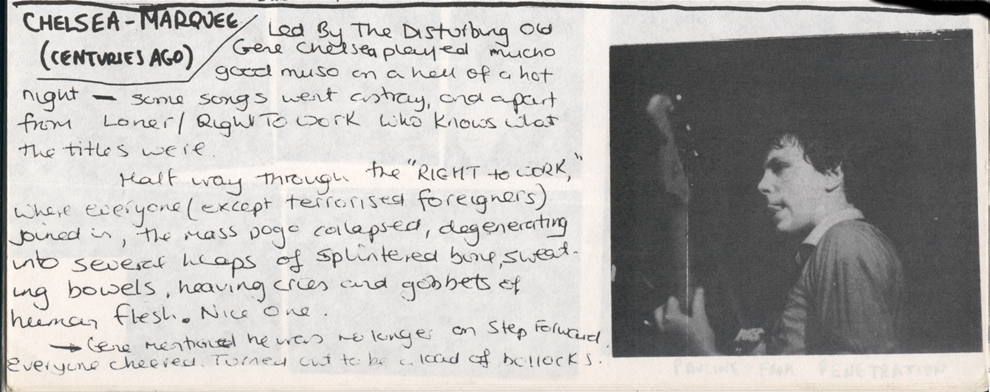 CHELSEA - MARQUEE
(CENTURIES AGO)
Led By The Disturbing Old
Gene Chelsea played mucho
good muso on a hell of a hot
night — some songs went astray, and apart
from Loner / Right To Work who knows what
the titles were.
Half way through the "RIGHT to WORK,"
where everyone (except terrorised foreigners)
joined in, the mass pogo collapsed, degenerating
into several heaps of splintered bone, sweat-
ing bowels, heaving cries and gobbets of
human flesh. Nice One.
→ Gene mentioned he was no longer on Step Forward.
Everyone cheered. Turned out to be a load of bollocks.
PAULINE FROM PENETRATION